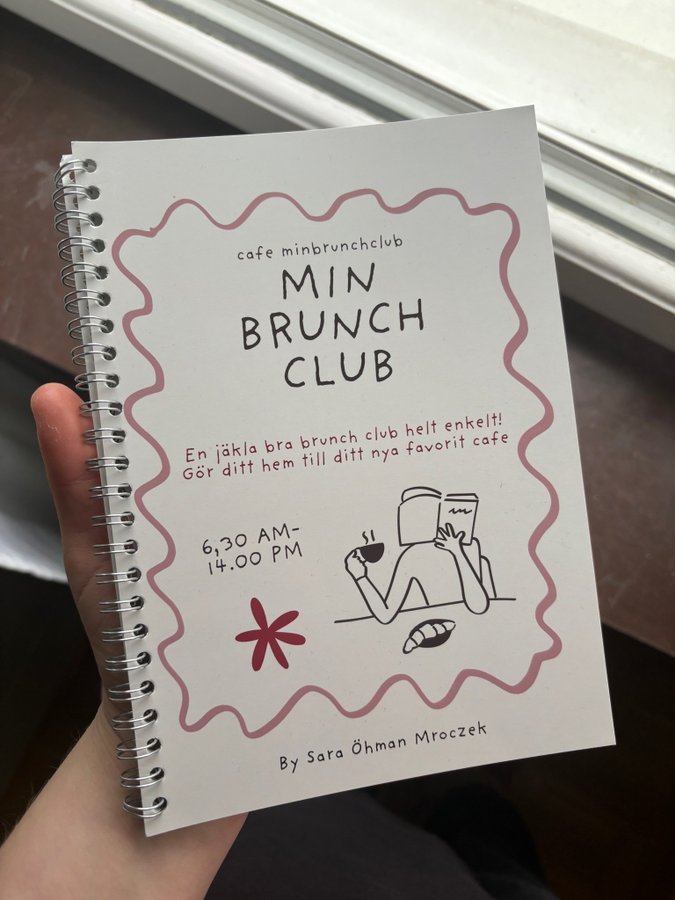 cafe minbrunchclub
MIN
BRUNCH
CLUB
En jäkla bra brunch club helt enkelt!
Gör ditt hem till ditt nya favorit cafe
6,30 AM-
14.00 PM
By Sara Öhman Mroczek